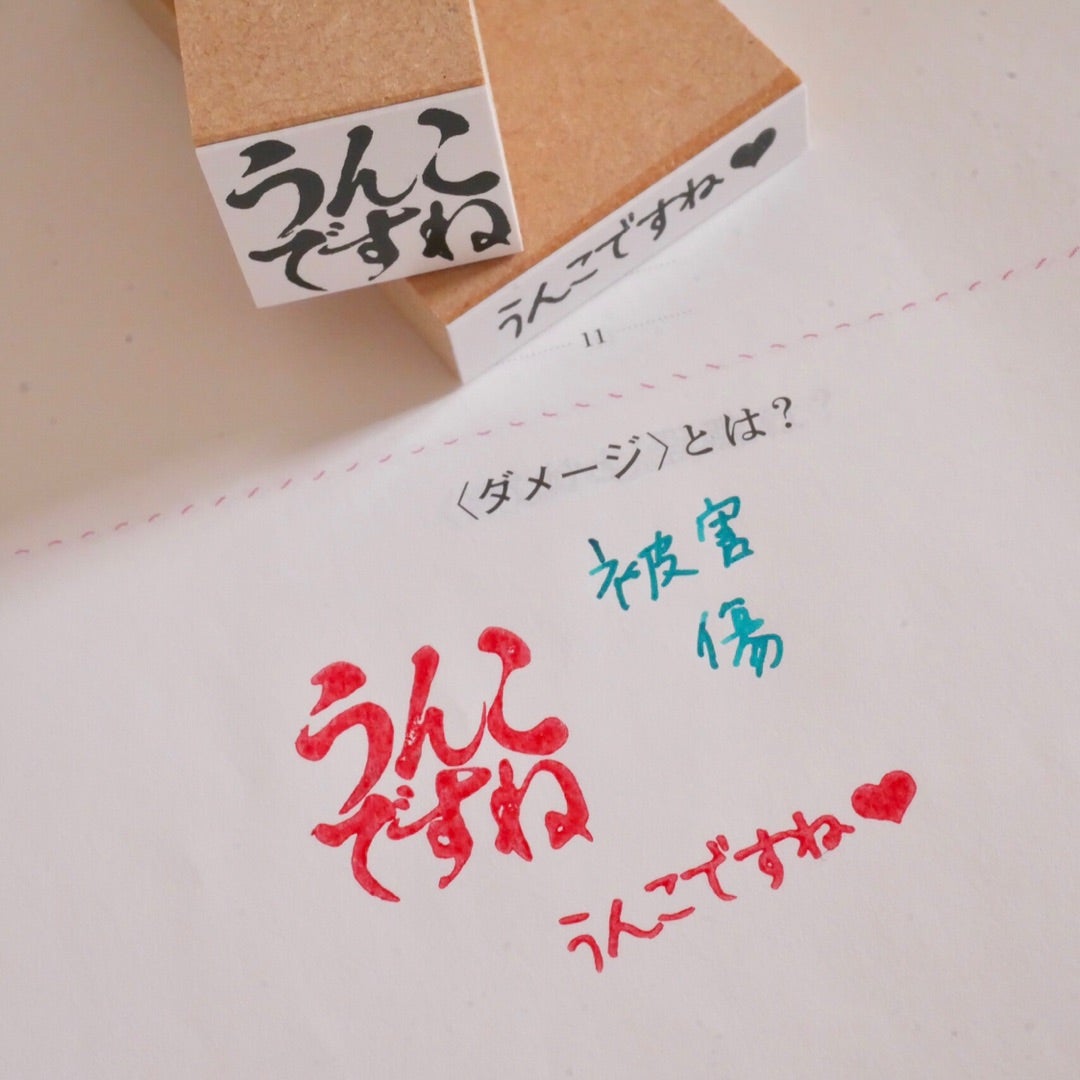 うんこ
ですね
うんこですね♥
11
〈ダメージ〉とは?
被害
傷
うんこ
ですね
うんこですね♥